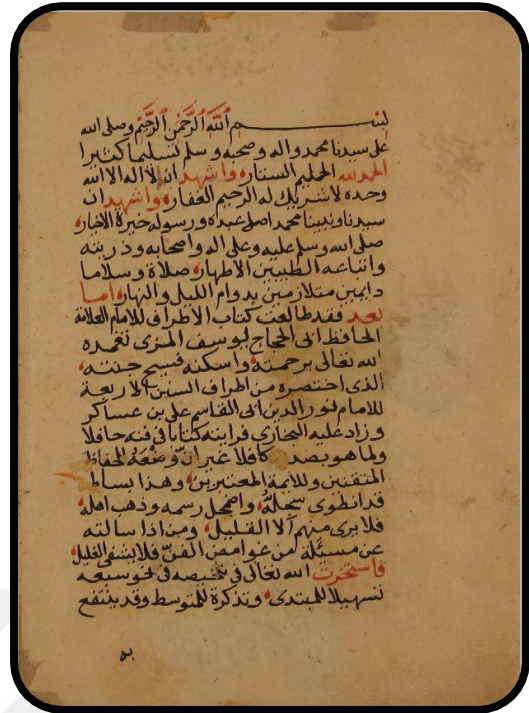 بسم الله الرحمن الرحيم وصلى الله
على سيدنا محمد واله وصحبه وسلم تسليما كثيرا
الحمد لله الحليم الستار واشهد ان لا اله الا الله
وحده لا شريك له الرحيم الغفار واشهد ان
سيدنا ونبينا محمدا صلى عبده ورسوله خيرة الاخيار
صلى الله وسلم عليه وعلى اله واصحابه وذريته
واتباعه الطيبين الاطهار صلاة وسلاما
دايمين متلازمين بدوام الليل والنهار اما
بعد فقد طالعت كتاب الاطراف للامام العلامة
الحافظ ابى الحجاج يوسف المزى تغمده
الله تعالى برحمته واسكنه فسيح جنته
الذى اختصره من اطراف السنن الاربعة
للامام نور الدين ابى القاسم على بن عساكر
وزاد عليه البخارى فرايته كتابا فى فنه حافلا
ولما هو بصدده كافلا غير ان وضعه للحفاظ
المتقنين وللايمة المعتبرين وهذا بساط
قد انطوى سجله واضمحل رسمه وذهب اهله
فلا يرى منهم الا القليل ومن اذا سالته
عن مسئلة من غوامض الفن فلا يشفى الغليل
فاستخرت الله تعالى فى تلخيصه فى نحو سبعه
تسهيلا للمبتدى وتذكرة للمتوسط وقد ينتفع
به